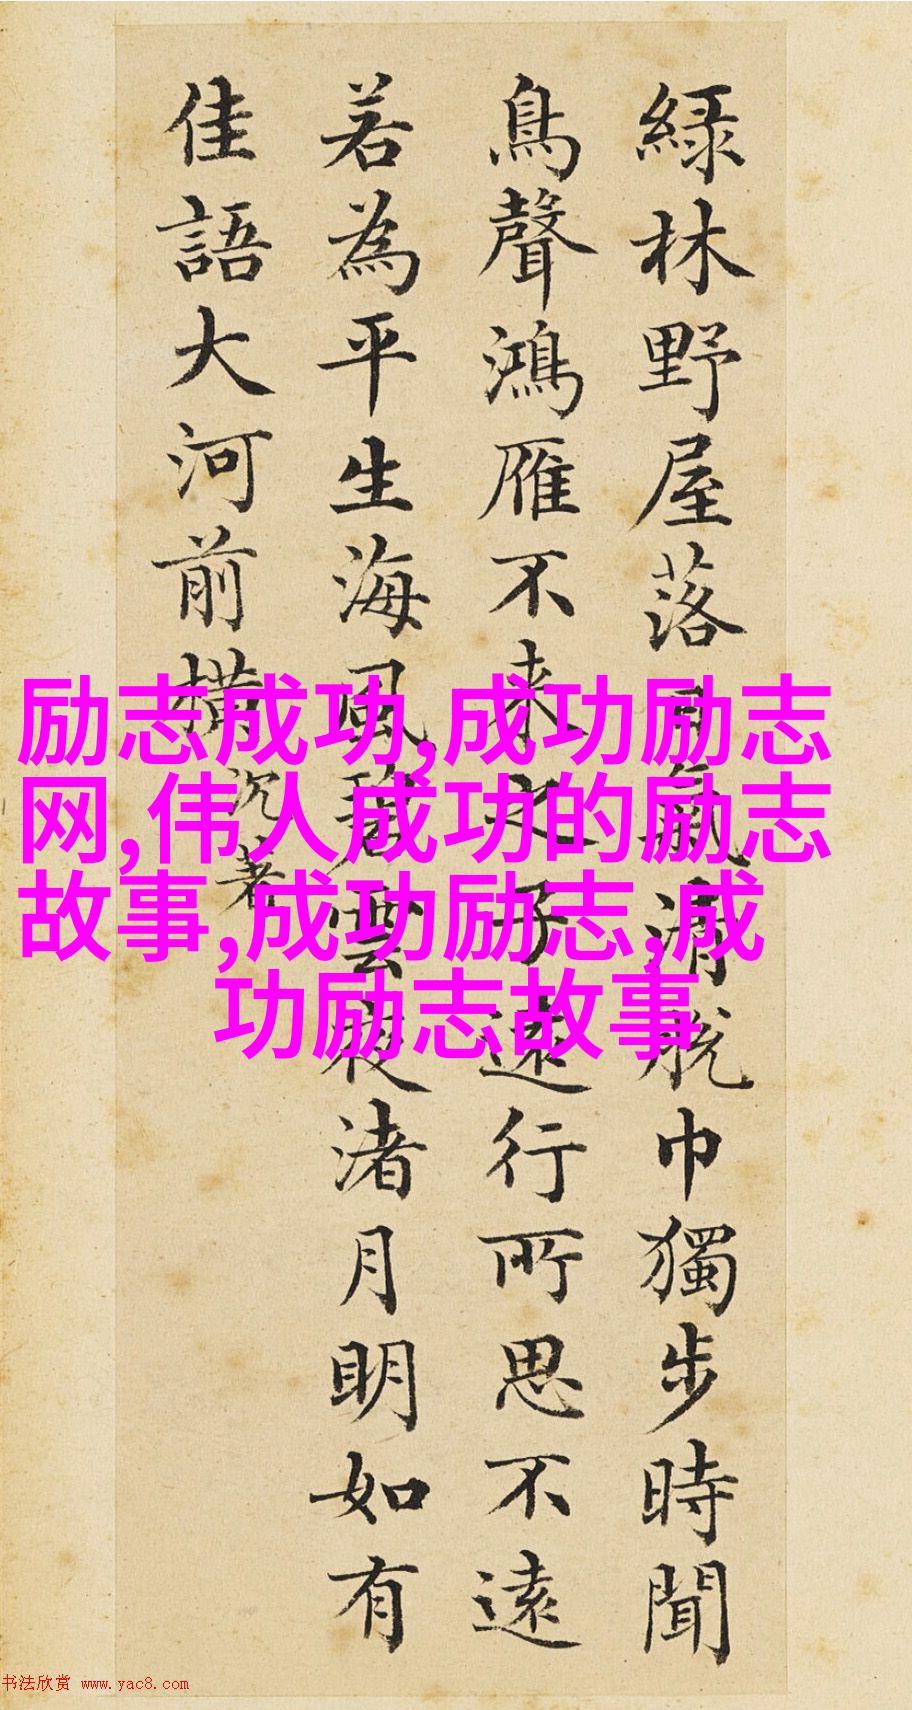 綠林野屋落日氣清脫巾獨步時聞
鳥聲鴻雁不來之子遠行所思不遠
若為平生海風碧雲夜渚月明如有
佳語大河前橫 沉著
励志成功,成功励志
网,伟人成功的励志
故事,成功励志,成
功励志故事
书法欣赏 www.yac8.com